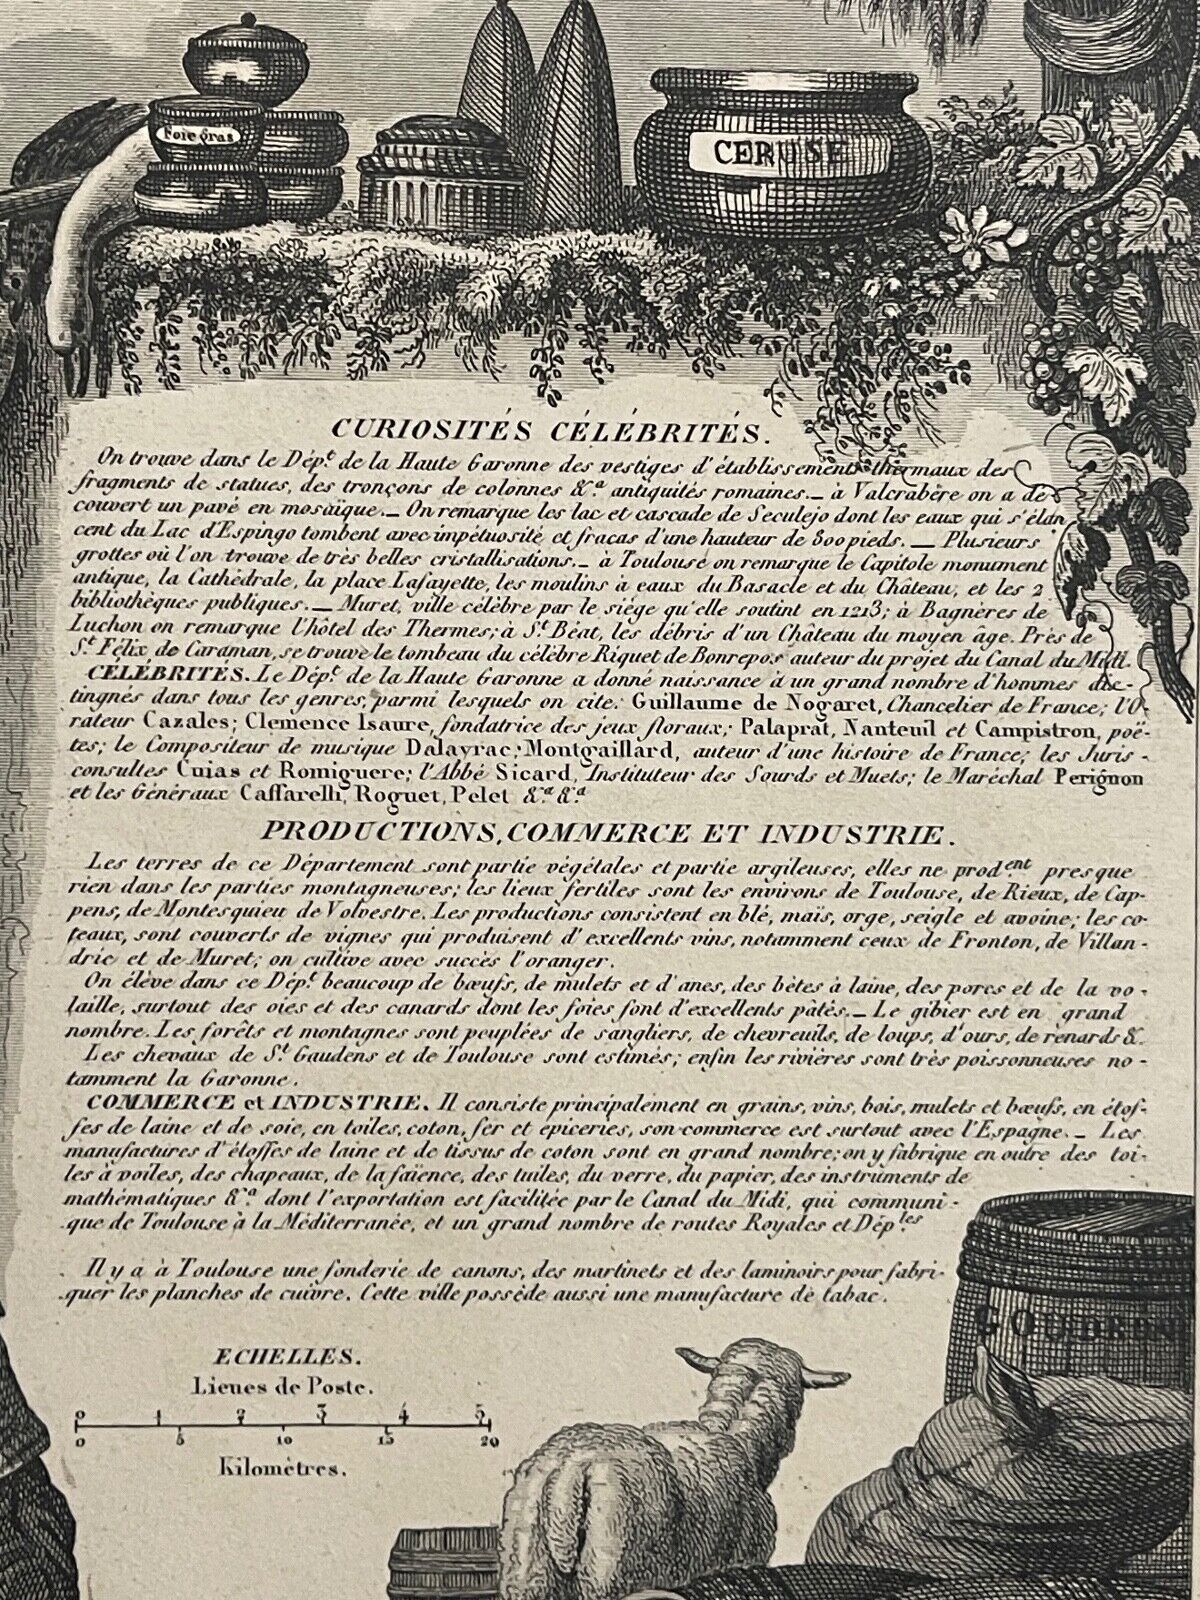 Foie gras
CERUSE
CURIOSITÉS CÉLÉBRITÉS.
On trouve dans le Dép.t de la Haute Garonne des vestiges d'établissements thermaux des
fragments de statues, des tronçons de colonnes &.a antiquités romaines._ à Valcrabère on a dé
couvert un pavé en mosaïque._ On remarque les lac et cascade de Seculejo dont les eaux qui s'élan
cent du Lac d'Espingo tombent avec impétuosité et fracas d'une hauteur de 800 pieds. _ Plusieurs
grottes où l'on trouve de très belles cristallisations._ à Toulouse on remarque le Capitole monument
antique, la Cathédrale, la place Lafayette, les moulins à eaux du Basacle et du Château, et les 2
bibliothèques publiques._ Muret, ville célèbre par le siége qu'elle soutint en 1213; à Bagnères de
Luchon on remarque l'hôtel des Thermes; à S.t Béat, les débris d'un Château du moyen âge. Près de
S.t Félix de Caraman, se trouve le tombeau du célèbre Riquet de Bonrepos auteur du projet du Canal du Midi.
CÉLÉBRITÉS. Le Dép.t de la Haute Garonne a donné naissance à un grand nombre d'hommes dis-
tingnés dans tous les genres, parmi lesquels on cite: Guillaume de Nogaret, Chancelier de France; l'O-
rateur Cazales; Clemence Isaure, fondatrice des jeux floraux; Palaprat, Nanteuil et Campistron, poë-
tes; le Compositeur de musique Dalayrac; Montgaillard, auteur d'une histoire de France; les Juris-
consultes Cuias et Romiguere; l'Abbé Sicard, Instituteur des Sourds et Muets; le Maréchal Perignon
et les Généraux Caffarelli, Roguet, Pelet &.a &.a
PRODUCTIONS, COMMERCE ET INDUSTRIE.
Les terres de ce Département sont partie végétales et partie argileuses, elles ne prod.ent presque
rien dans les parties montagneuses; les lieux fertiles sont les environs de Toulouse, de Rieux, de Cap-
pens, de Montesquieu de Volvestre. Les productions consistent en blé, maïs, orge, seigle et avoine; les co-
teaux, sont couverts de vignes qui produisent d'excellents vins, notamment ceux de Fronton, de Villau-
dric et de Muret; on cultive avec succès l'oranger.
On élève dans ce Dép.t beaucoup de bœufs, de mulets et d'anes, des bètes à laine, des porcs et de la vo-
laille, surtout des oies et des canards dont les foies font d'excellents pâtés._ Le gibier est en grand
nombre. Les forêts et montagnes sont peuplées de sangliers, de chevreuils, de loups, d'ours, de renards &.
Les chevaux de S.t Gaudens et de Toulouse sont estimés; enfin les rivières sont très poissonneuses no-
tamment la Garonne.
COMMERCE et INDUSTRIE. Il consiste principalement en grains, vins, bois, mulets et bœufs, en étof-
fes de laine et de soie, en toiles, coton, fer et épiceries, son commerce est surtout avec l'Espagne._ Les
manufactures d'étoffes de laine et de tissus de coton sont en grand nombre; on y fabrique en outre des toi-
les à voiles, des chapeaux, de la faïence, des tuiles, du verre, du papier, des instruments de
mathématiques &.a dont l'exportation est facilitée par le Canal du Midi, qui communi-
que de Toulouse à la Méditerranée, et un grand nombre de routes Royales et Dép.les
Il y a à Toulouse une fonderie de canons, des martinets et des laminoirs pour fabri-
quer les planches de cuivre. Cette ville possède aussi une manufacture de tabac.
GOUDRON
ECHELLES.
Lieues de Poste.
0 1 2 3 4 5
0 5 10 15 20
Kilomètres.